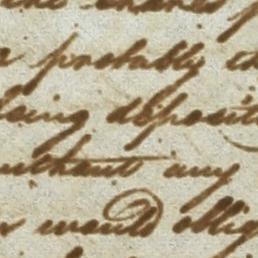 the
probably
being deposit
without any
would oblig